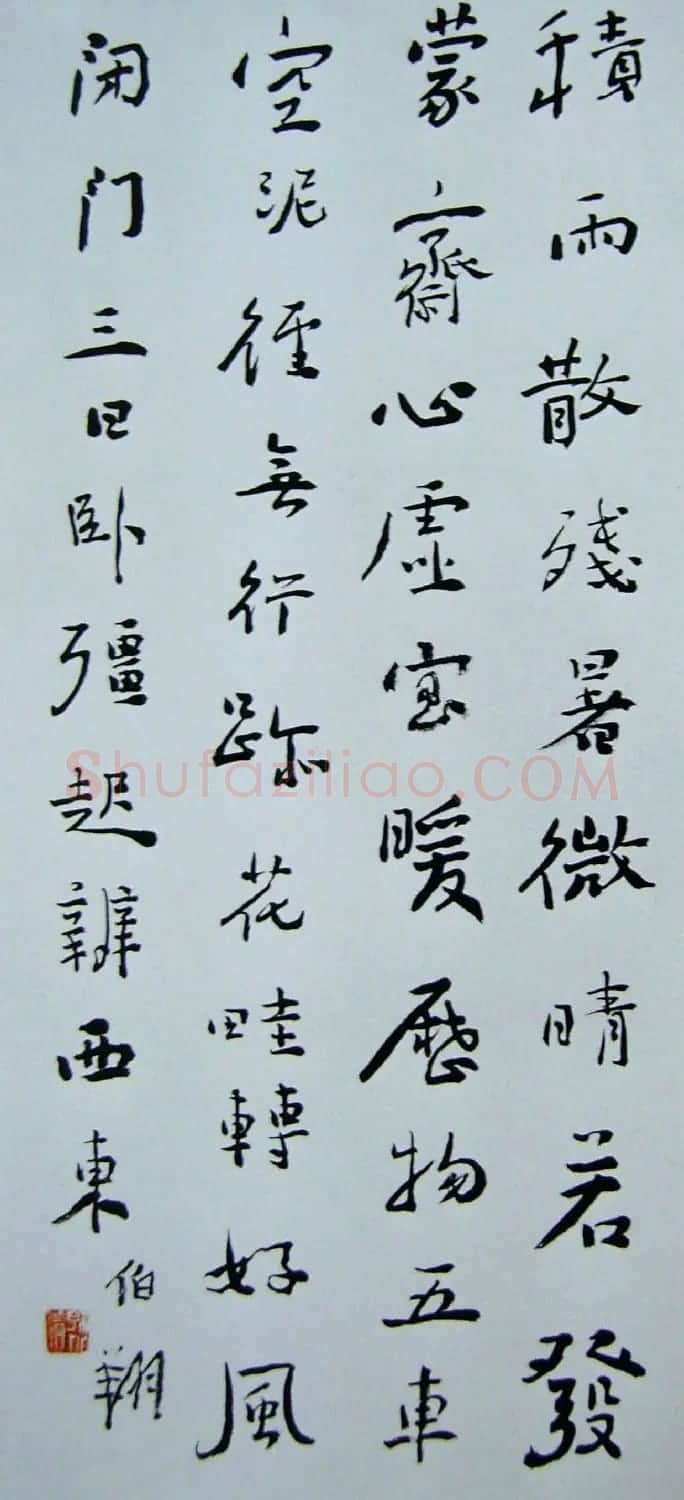 積雨散殘暑微晴若發
蒙齋心虛室暖歷物五車
空泥徑無行跡花畦轉好風
闭门三日卧彊起辨西東
伯翔
Shufaziliao.COM